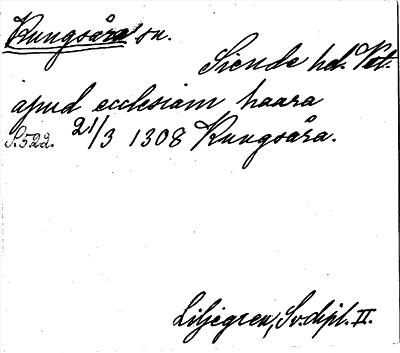 Kungsåra sn.
Siende hd. Vstm.
apud ecclesiam haara
S. 522. 21/3 1308 Kungsåra.
Liljegren, Sv. dipl. II.